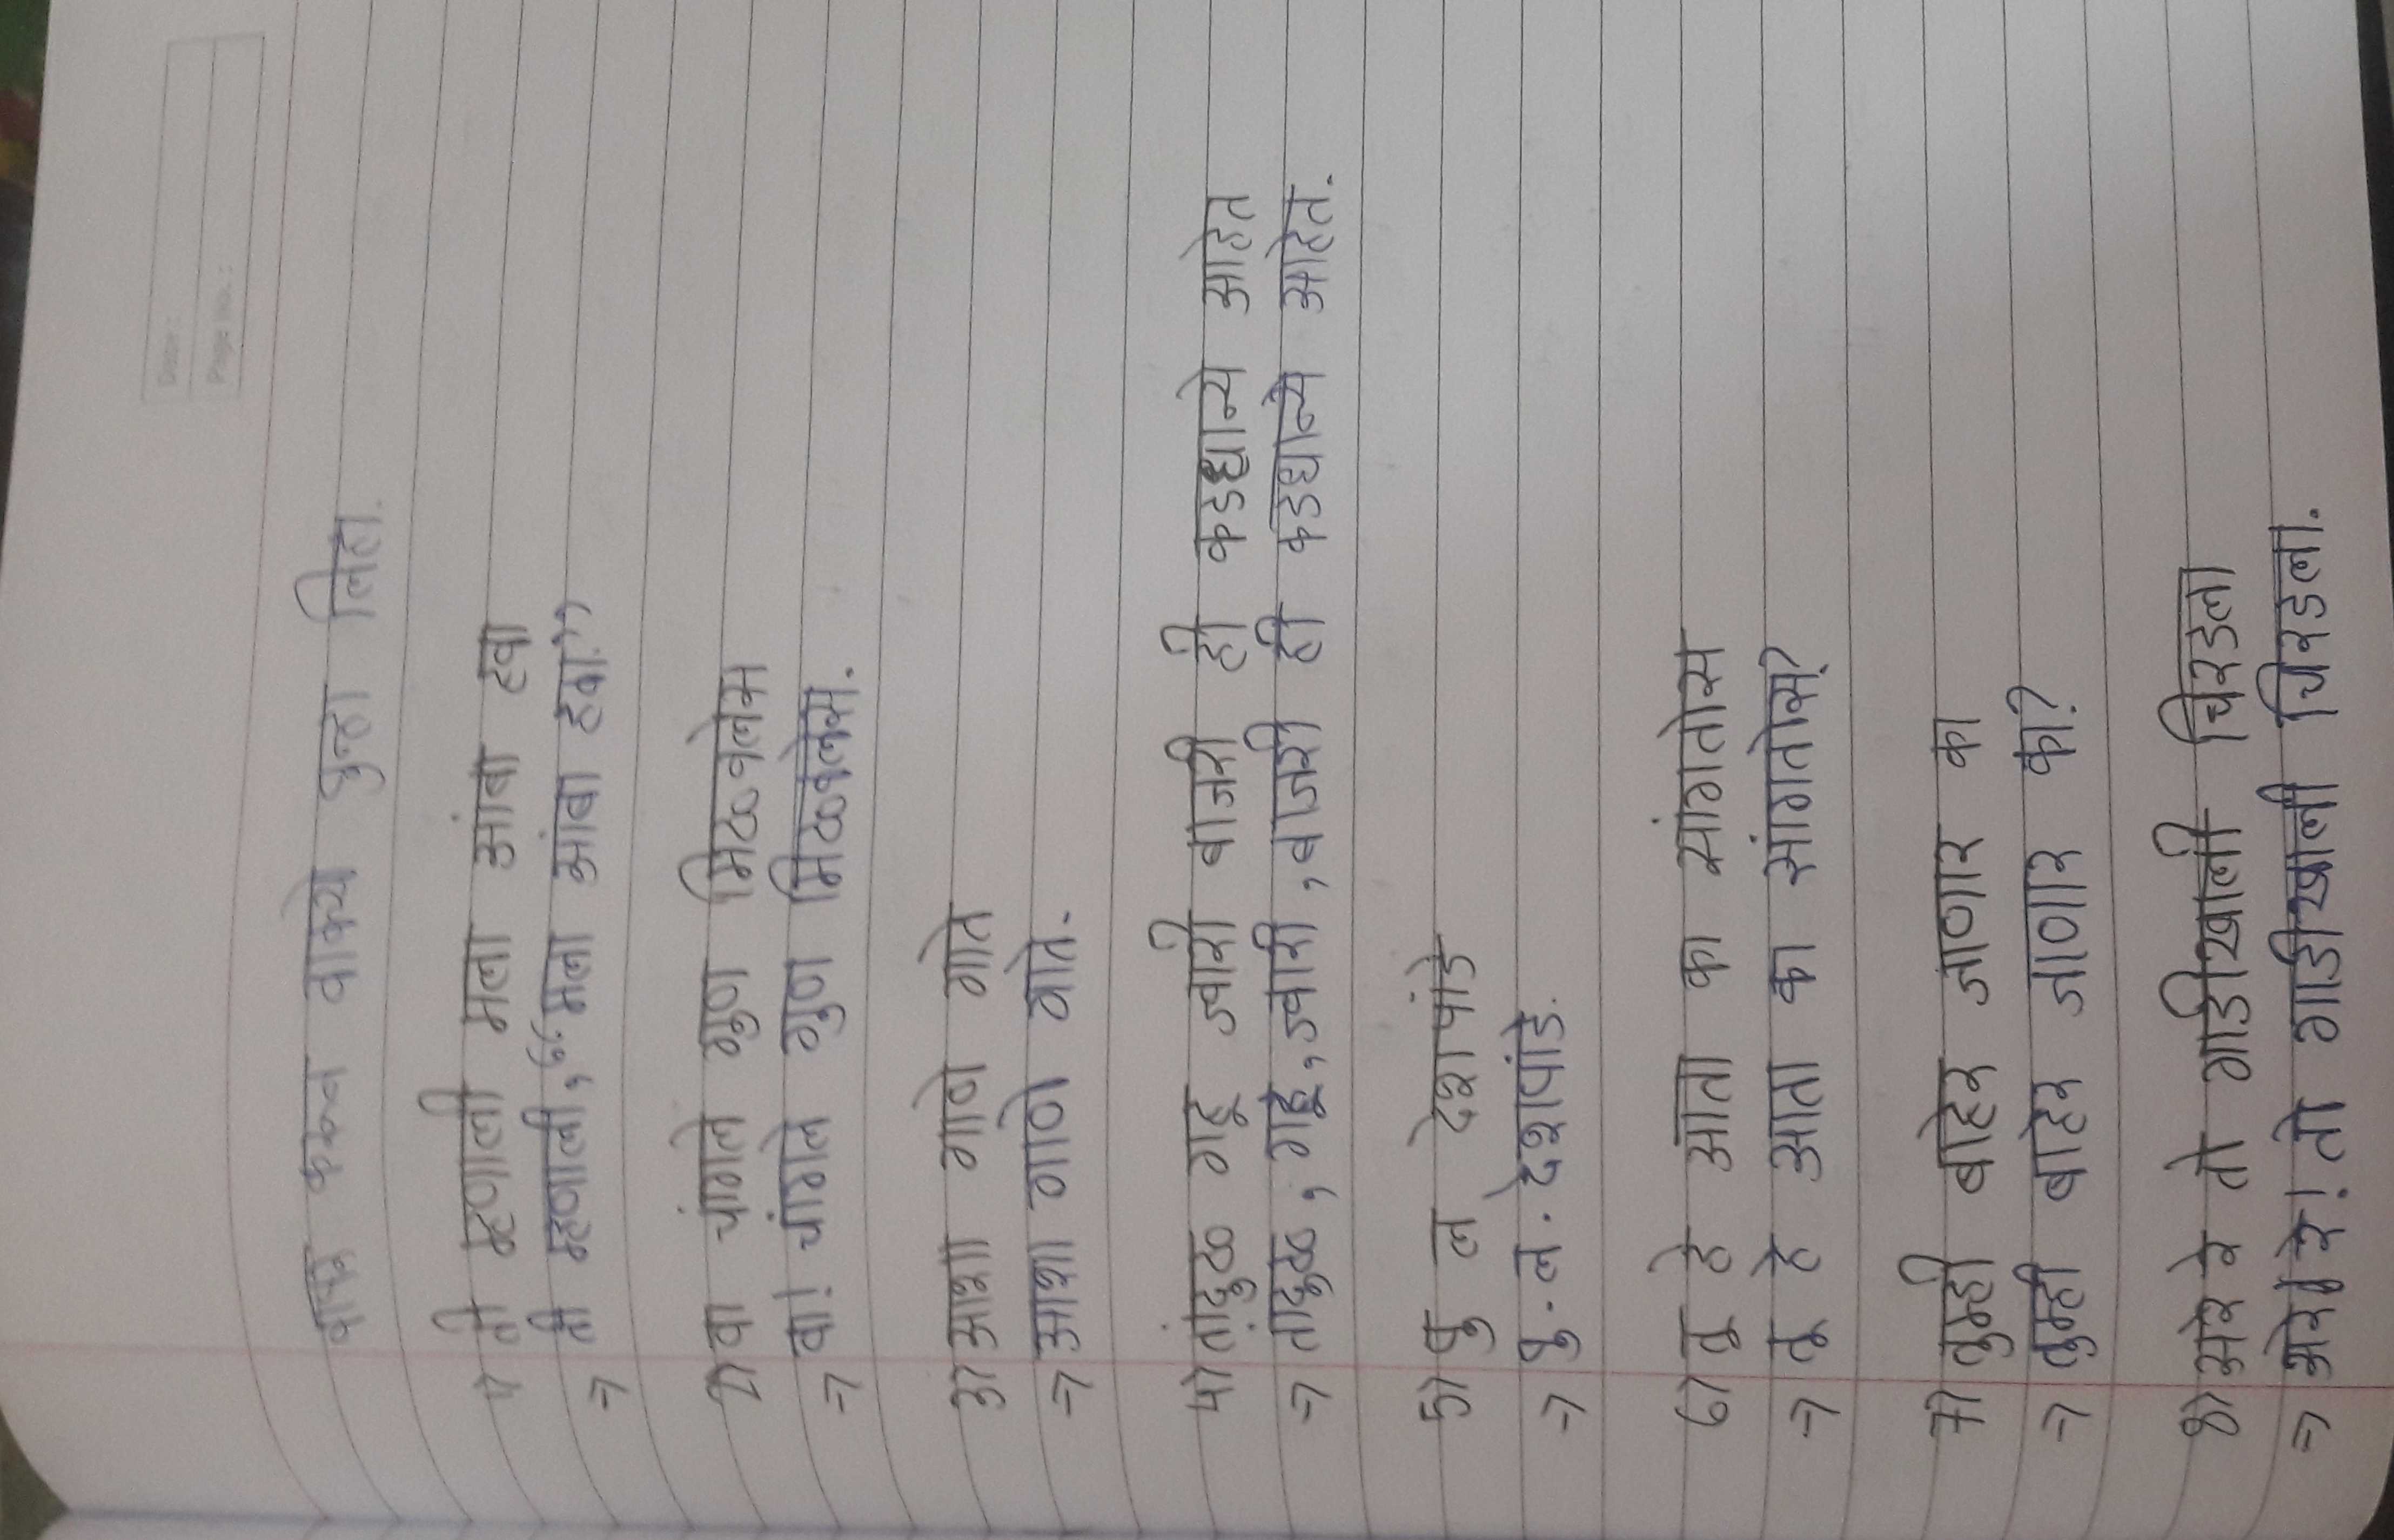 Date :
Page No. :
वापर करून वाक्ये पुन्हा लिहा.
1) ती म्हणाली मला आंबा हवा
⇒ ती म्हणाली, “मला आंबा हवा.”
2) वा चांगले गुण मिळवलेस
⇒ वा! चांगले गुण मिळवलेस.
3) आशा गाणे गाते
⇒ आशा गाणे गाते.
4) तांदुळ गहू ज्वारी बाजरी ही कडधान्ये आहेत
⇒ तांदुळ, गहू, ज्वारी, बाजरी ही कडधान्ये आहेत.
5) पु ल देशपांडे
⇒ पु. ल. देशपांडे.
6) तू हे आता का सांगतोस
⇒ तू हे आता का सांगतोस?
7) तुम्ही बाहेर जाणार का
⇒ तुम्ही बाहेर जाणार का?
8) अरे रे तो गाडीखाली चिरडला
⇒ अरे रे! तो गाडीखाली चिरडला.